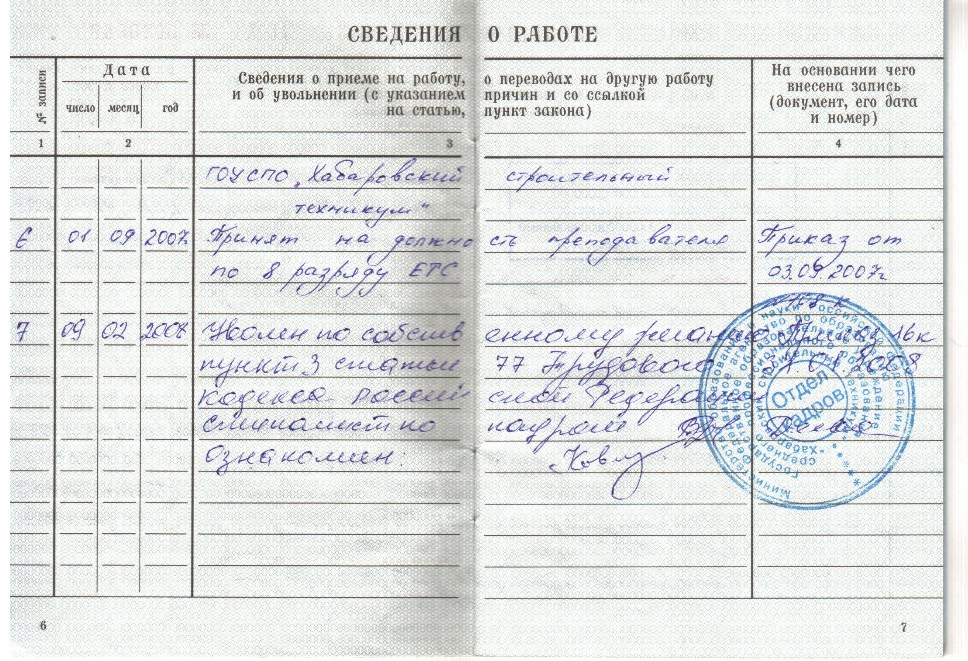 СВЕДЕНИЯ О РАБОТЕ
№ записи
Дата
число месяц год
Сведения о приеме на работу, о переводах на другую работу
и об увольнении (с указанием причин и со ссылкой
на статью, пункт закона)
На основании чего
внесена запись
(документ, его дата
и номер)
1 2 3 4
ГОУ СПО „Хабаровский строительный
техникум"
6 01 09 2007 Принят на должность преподавателя Приказ от
по 8 разряду ЕТС 03.09.2007г
7 09 02 2008 Уволен по собственному желанию
пункт 3 статьи 77 Трудового
кодекса Российской Федерации
специалист по кадрам
Ознакомлен:
Отдел
кадров
6
7